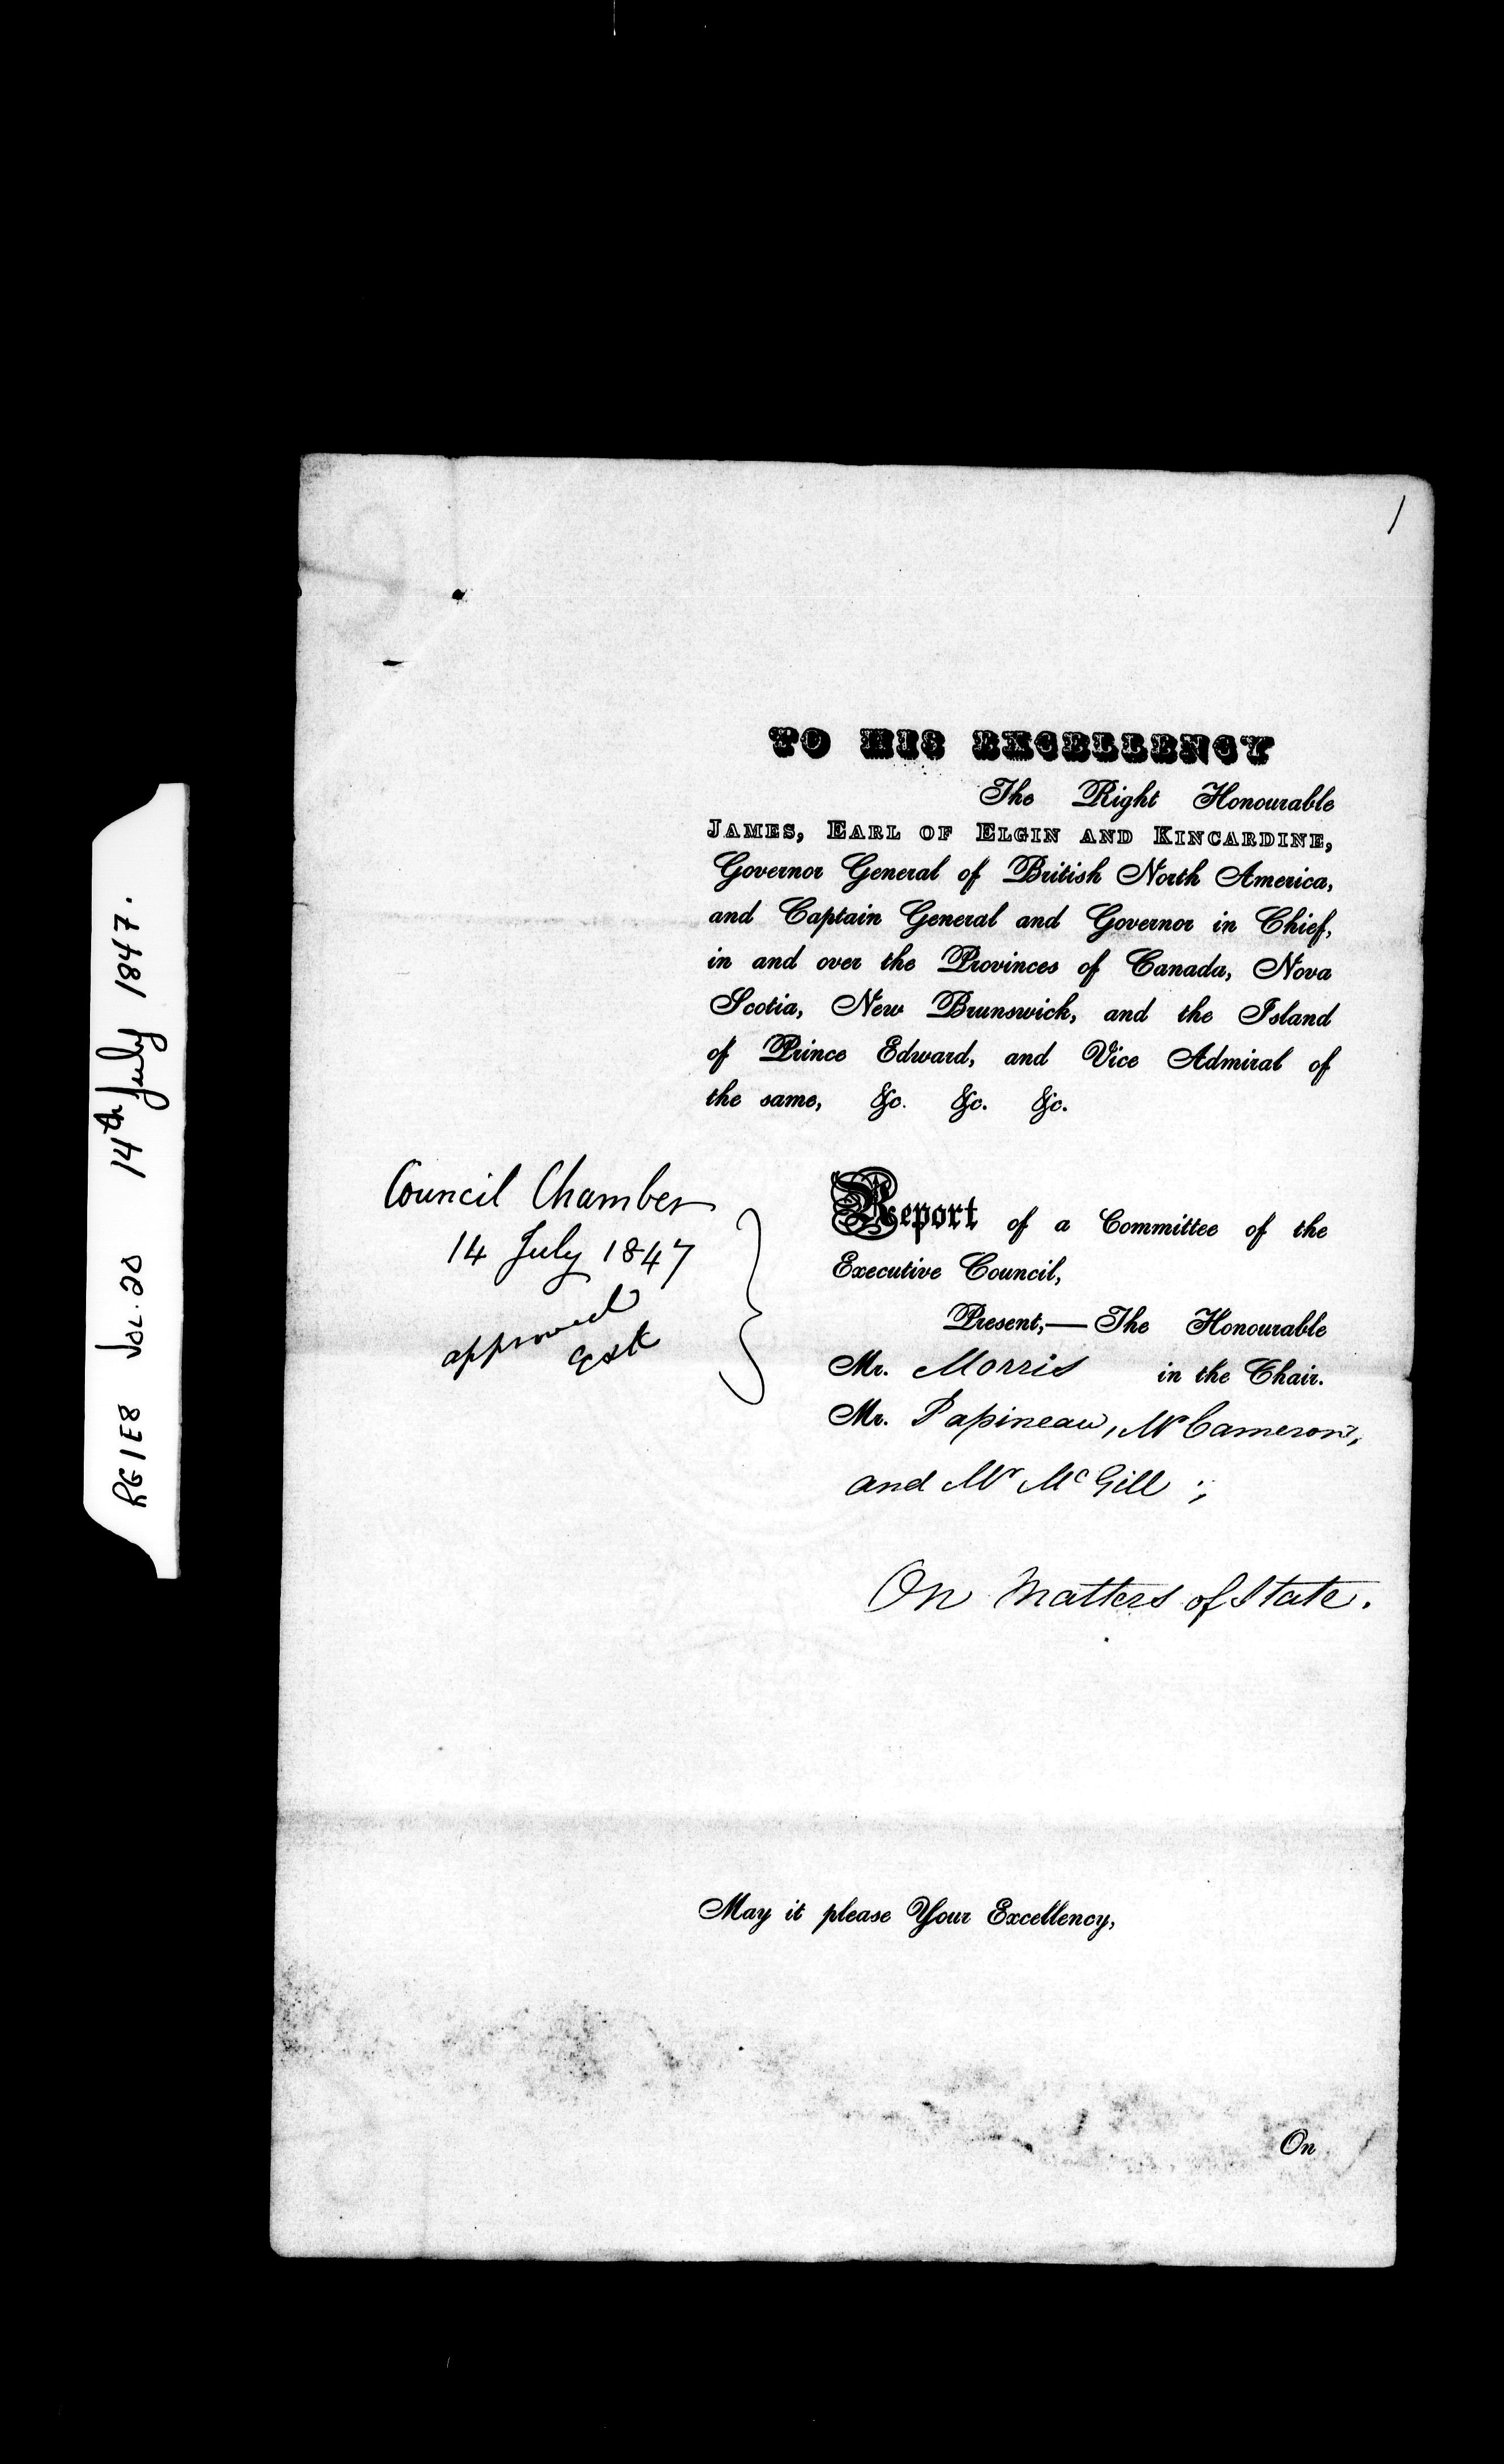 RG1E8 VOL. 20 14th July 1847.
1
TO HIS EXCELLENCY
The Right Honourable
JAMES, EARL OF ELGIN AND KINCARDINE,
Governor General of British North America,
and Captain General and Governor in Chief,
in and over the Provinces of Canada, Nova
Scotia, New Brunswick, and the Island
of Prince Edward, and Vice Admiral of
the same, &c. &c. &c.
Council Chamber
14 July 1847
approved
E&K
Report of a Committee of the
Executive Council,
Present,—The Honourable
Mr. Morris in the Chair.
Mr. Papineau, Mr Cameron,
and Mr McGill ;
On Matters of State.
May it please Your Excellency,
On